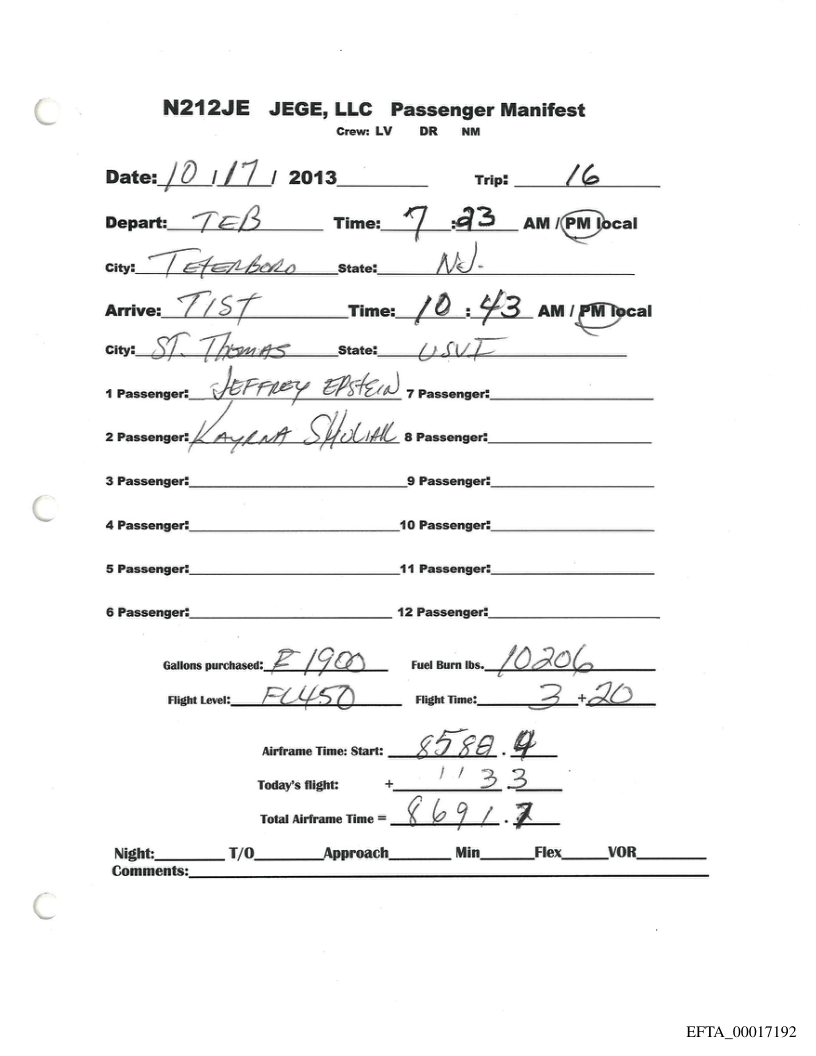 N212JE JEGE, LLC Passenger Manifest
Crew: LV DR NM
Date: 10 / 17 / 2013 Trip: 16
Depart: TEB Time: 7 :23 AM / PM local
City: TETERBORO State: NJ.
Arrive: TIST Time: 10 : 43 AM / PM local
City: ST. THOMAS State: USVI
1 Passenger: JEFFREY EPSTEIN 7 Passenger:
2 Passenger: KAYRNA SHULIAK 8 Passenger:
3 Passenger: 9 Passenger:
4 Passenger: 10 Passenger:
5 Passenger: 11 Passenger:
6 Passenger: 12 Passenger:
Gallons purchased: E 1900 Fuel Burn lbs. 10206
Flight Level: FL450 Flight Time: 3 + 20
Airframe Time: Start: 8588 . 4
Today's flight: + 3 3
Total Airframe Time = 8691 . 7
Night: T/O Approach Min Flex VOR
Comments:
EFTA_00017192